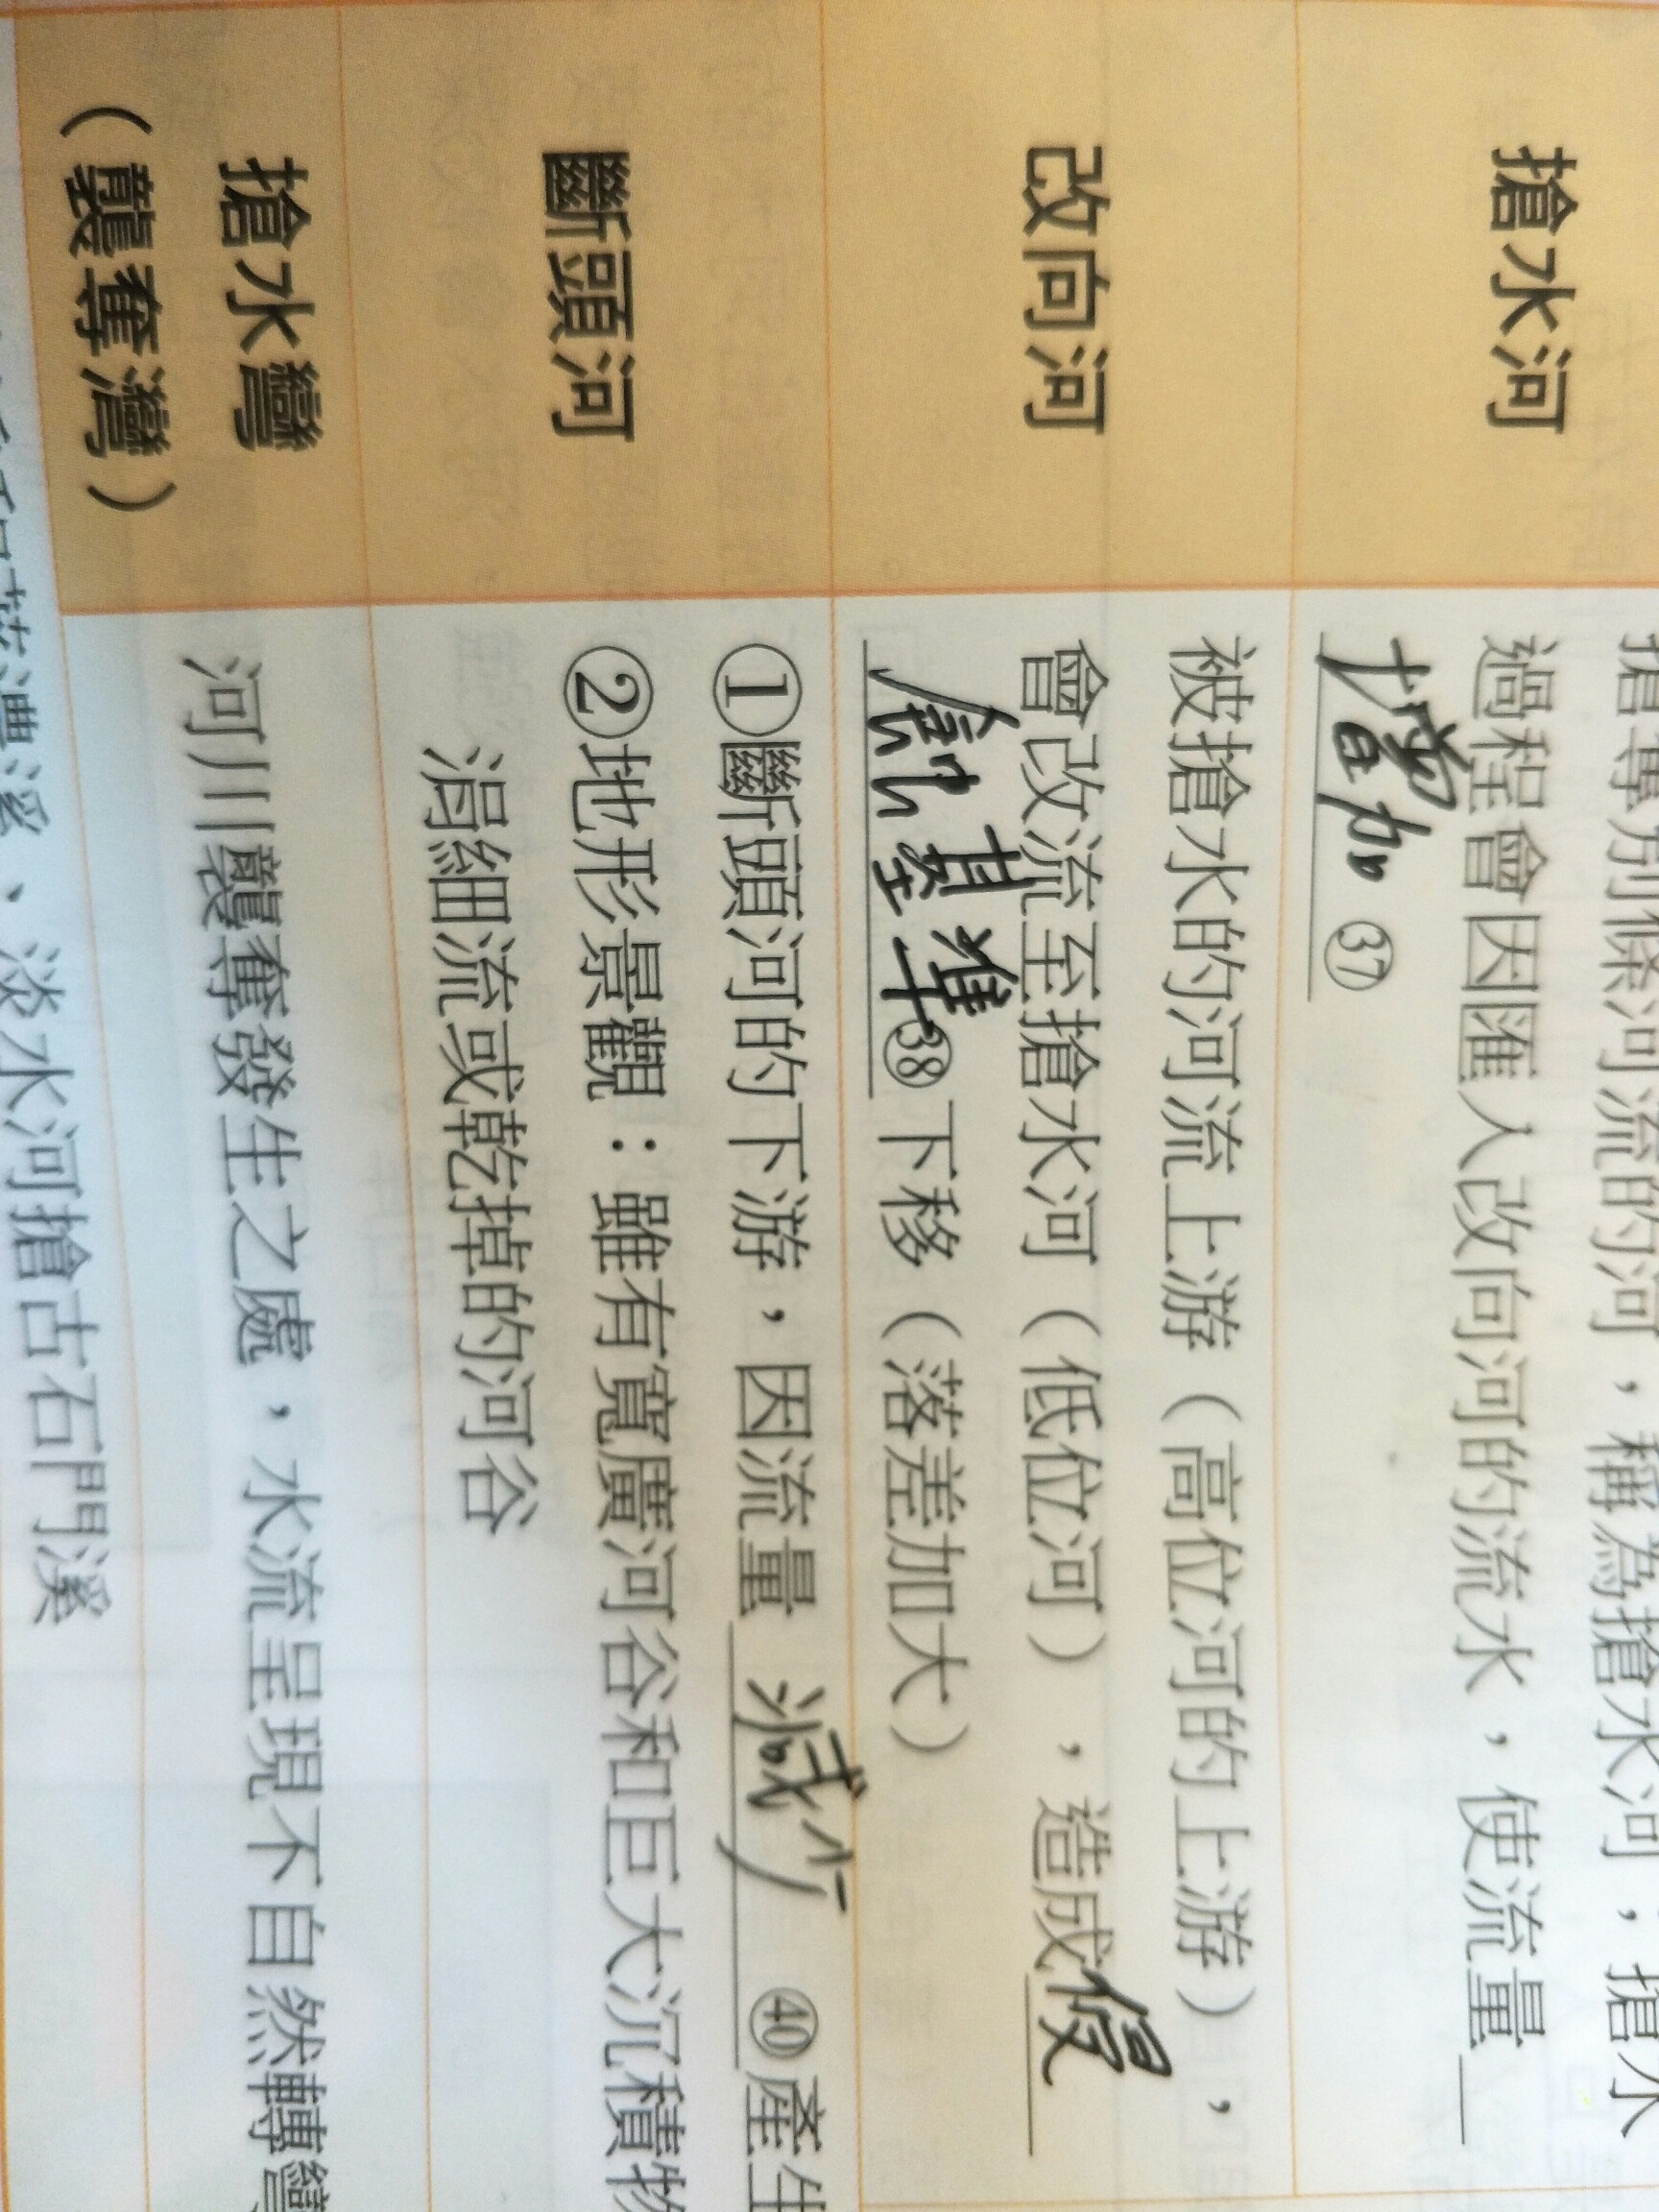 搶奪別條河流的河，稱為搶水河，搶水
搶水河
過程會因匯入改向河的流水，使流量
增加㊲
被搶水的河流上游（高位河的上游），
改向河
會改流至搶水河（低位河），造成侵
蝕基準㊳下移（落差加大）
①斷頭河的下游，因流量減少㊵產生
斷頭河
②地形景觀：雖有寬廣河谷和巨大沉積物
涓細流或乾掉的河谷
搶水灣
（襲奪灣）
河川襲奪發生之處，水流呈現不自然轉彎
溪、淡水河搶古石門溪